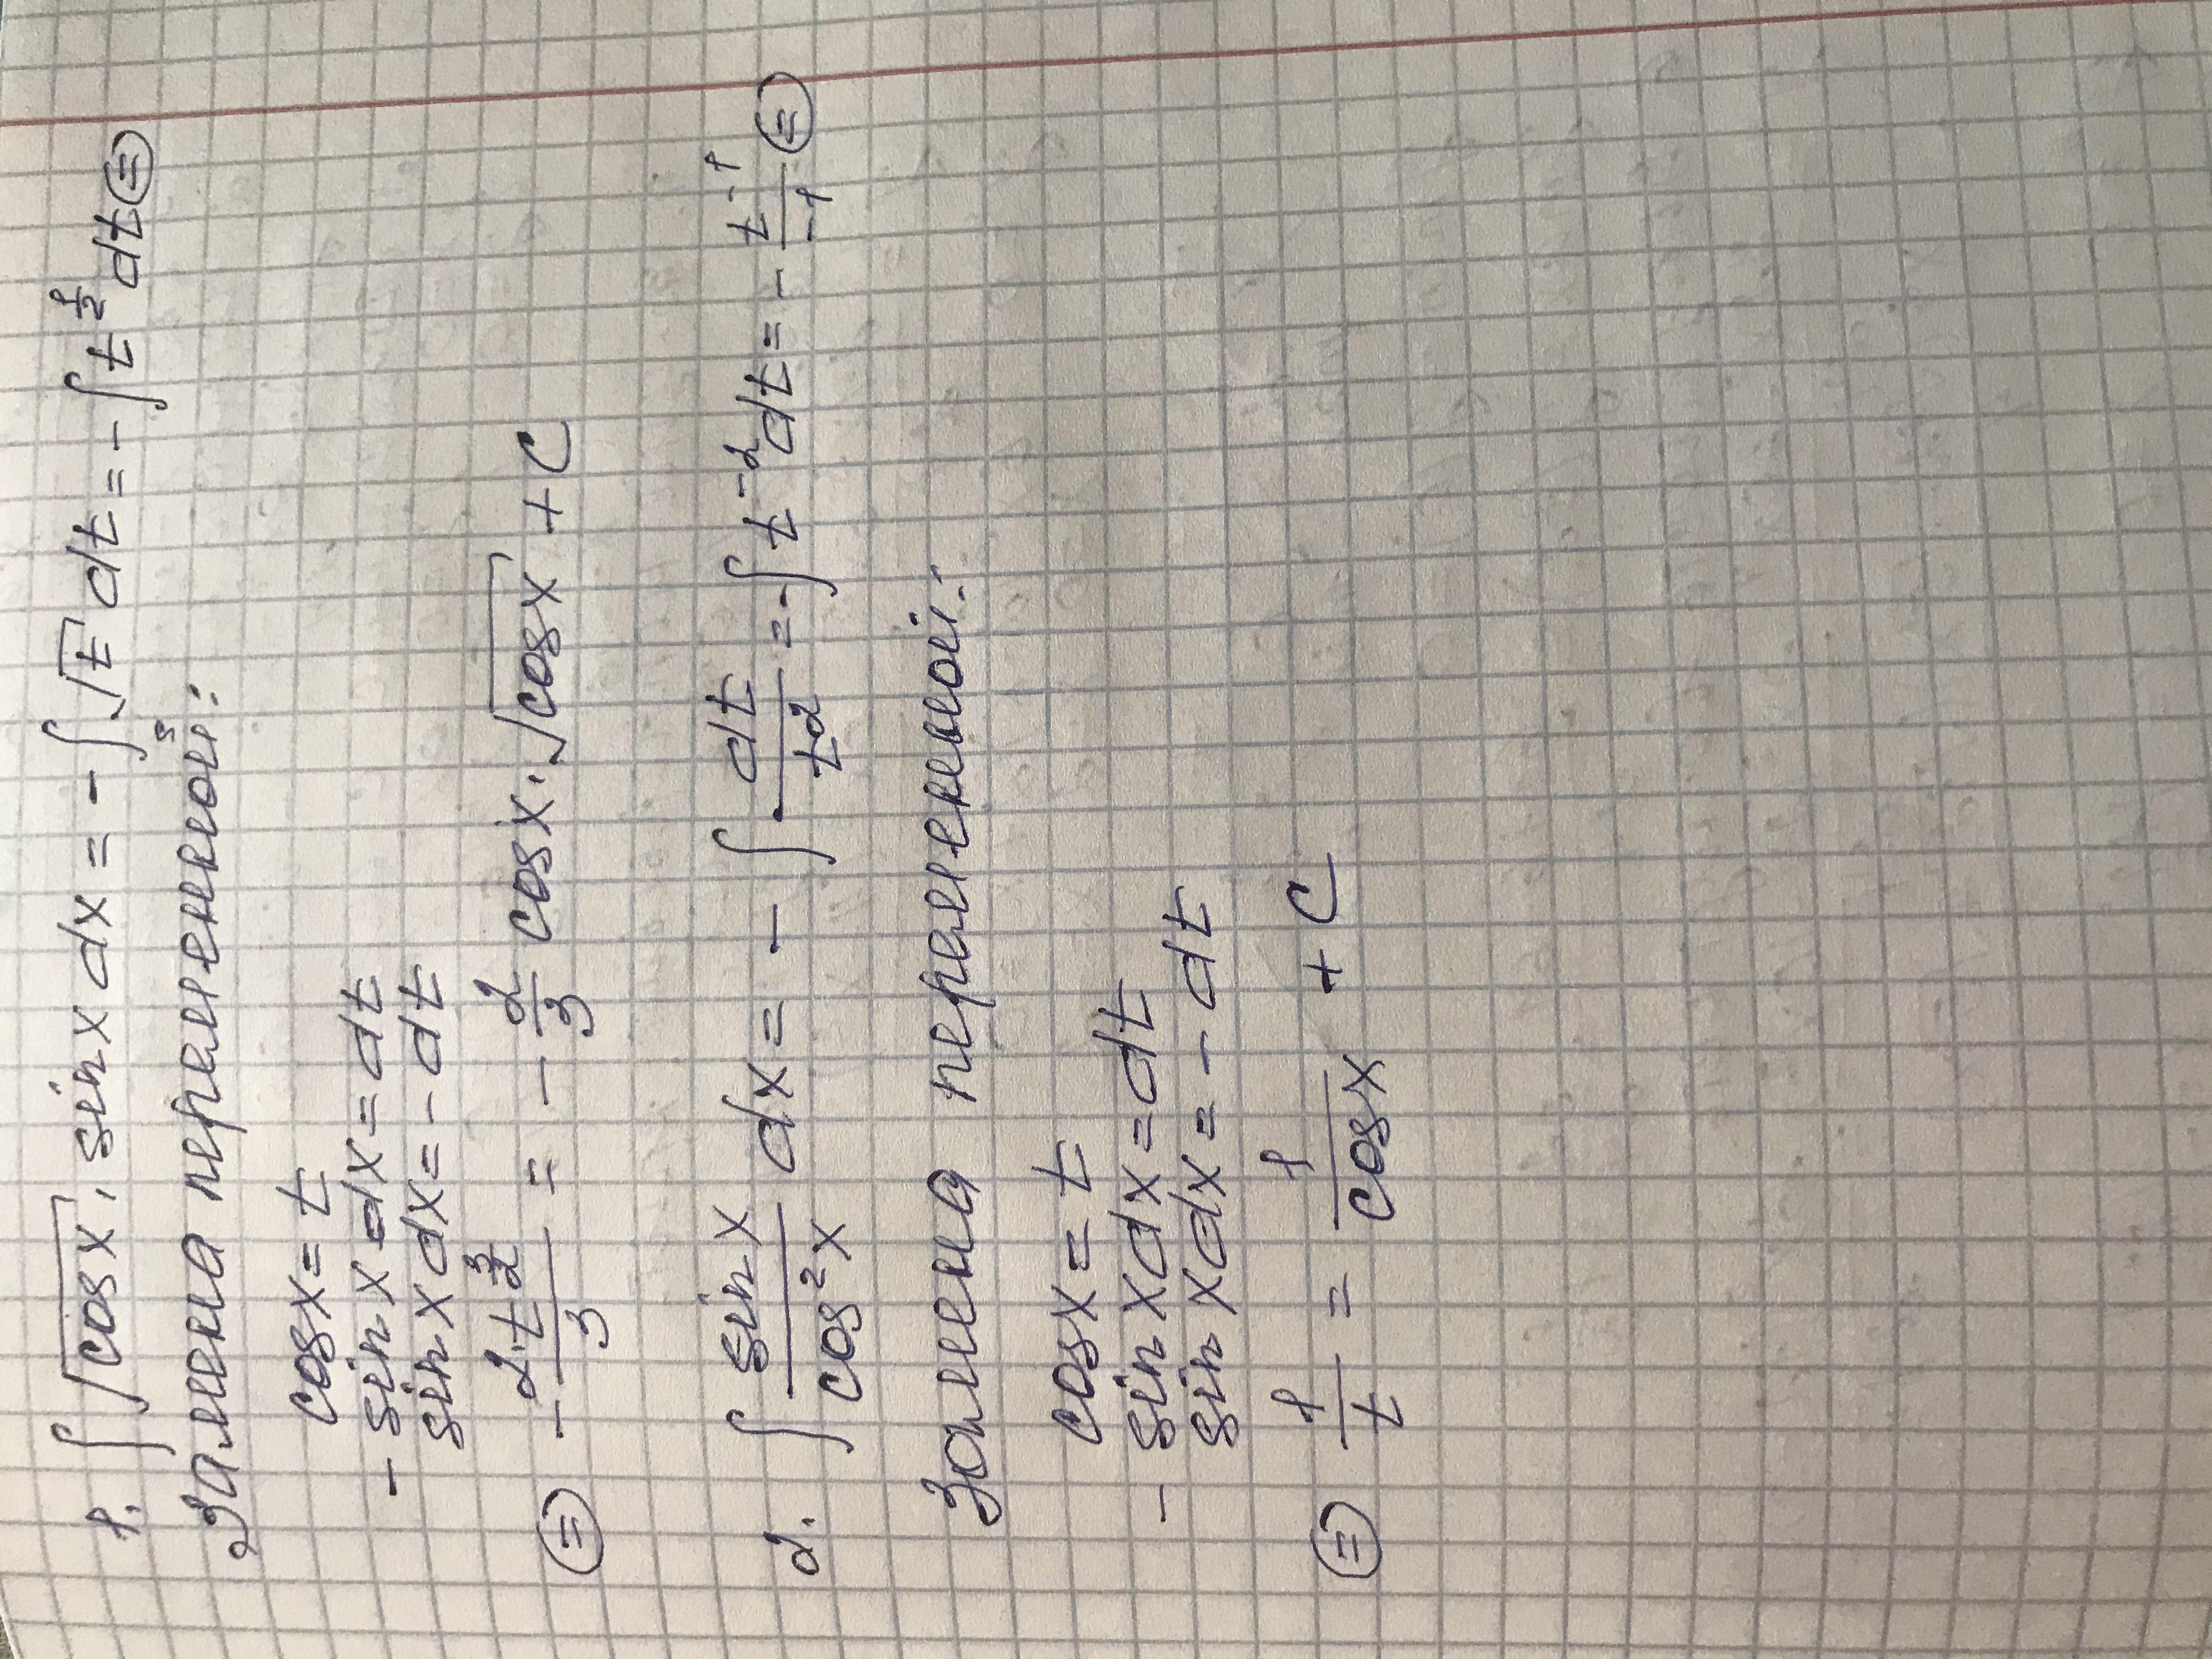 1. ∫ √cosx · sinx dx = - ∫ √t dt = - ∫ t^(1/2) dt ⊜
Замена переменной:
cosx = t
- sinx dx = dt
sinx dx = - dt
⊜ - (2·t^(3/2))/3 = - 2/3 cosx · √cosx + C
2. ∫ sinx/cos²x dx = - ∫ dt/t² = - ∫ t⁻² dt = - t⁻¹/-1 ⊜
Замена переменной:
cosx = t
- sinx dx = dt
sinx dx = - dt
⊜ 1/t = 1/cosx + C